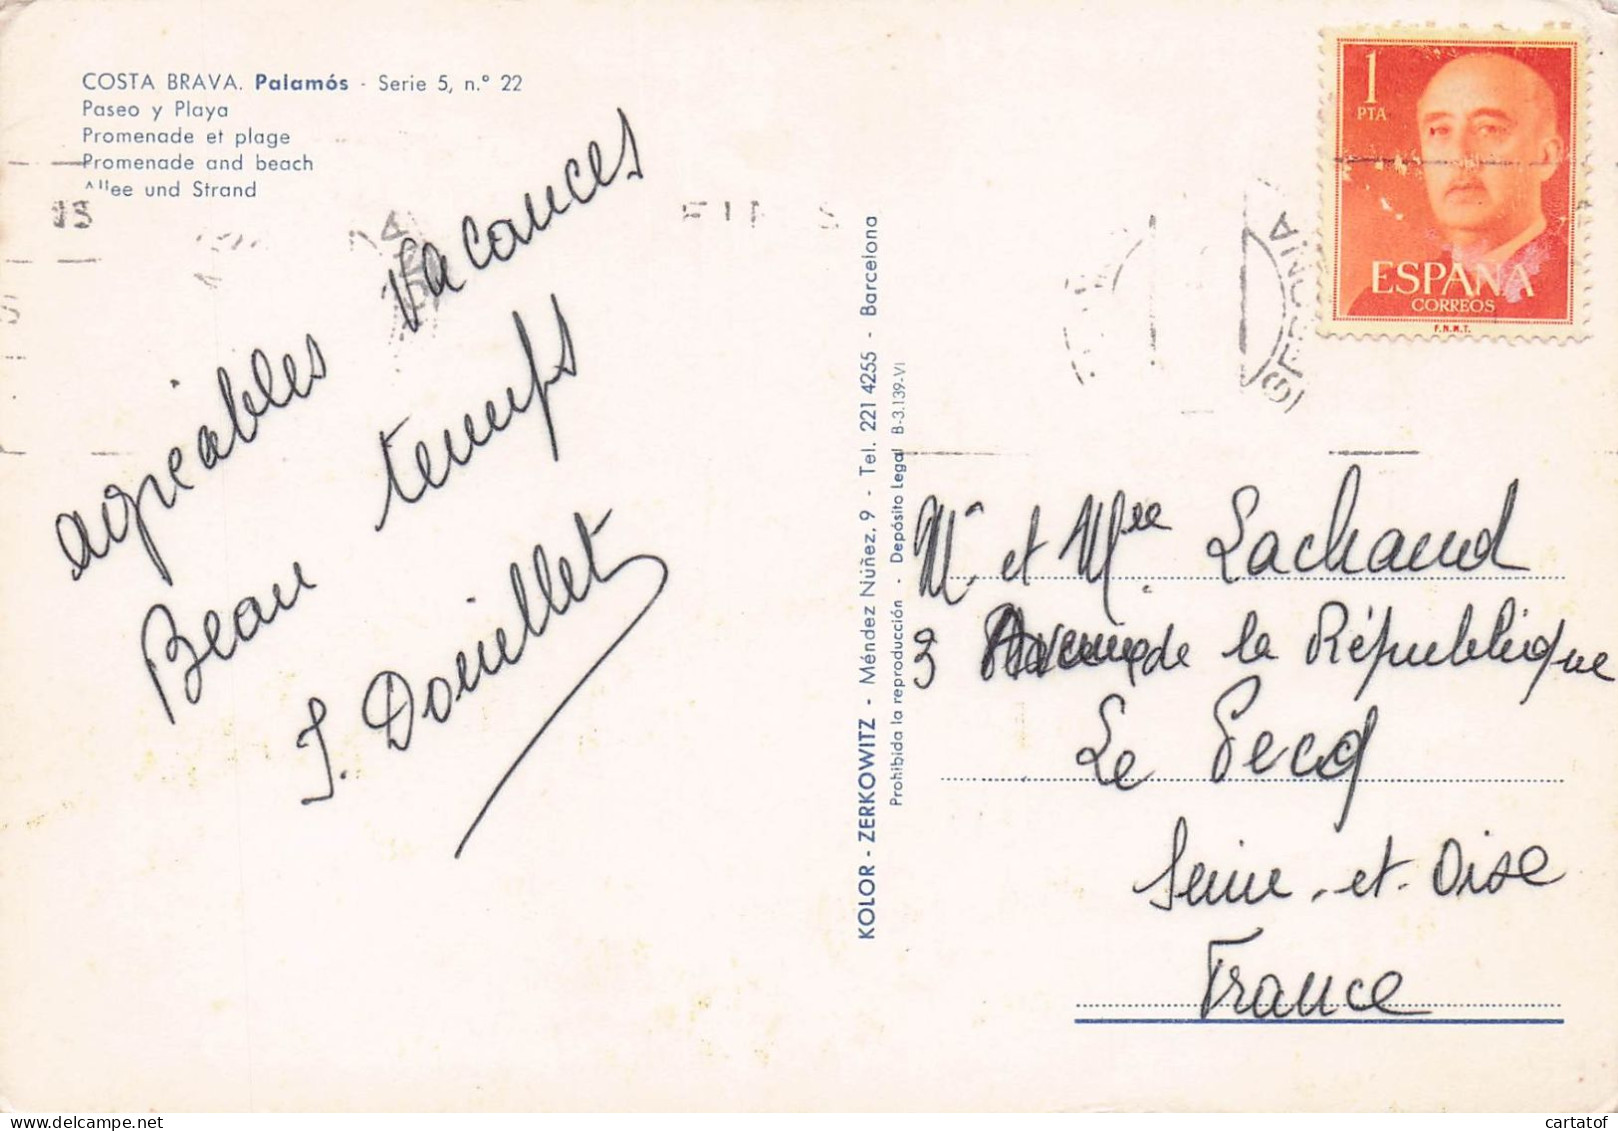 COSTA BRAVA. Palamós - Serie 5, n.º 22
Paseo y Playa
Promenade et plage
Promenade and beach
Allee und Strand
agréables vacances
Beau temps
J. Douillet
KOLOR - ZERKOWITZ - Méndez Núñez, 9 - Tel. 221 4255 - Barcelona
Prohibida la reproducción - Depósito Legal B-3.139-VI
1
PTA
ESPAÑA
CORREOS
F.N.M.T.
GERONA
Mr. et Mme. Lachaud
3 Avenue de la République
Le Pecq
Seine-et-Oise
France
cartatof